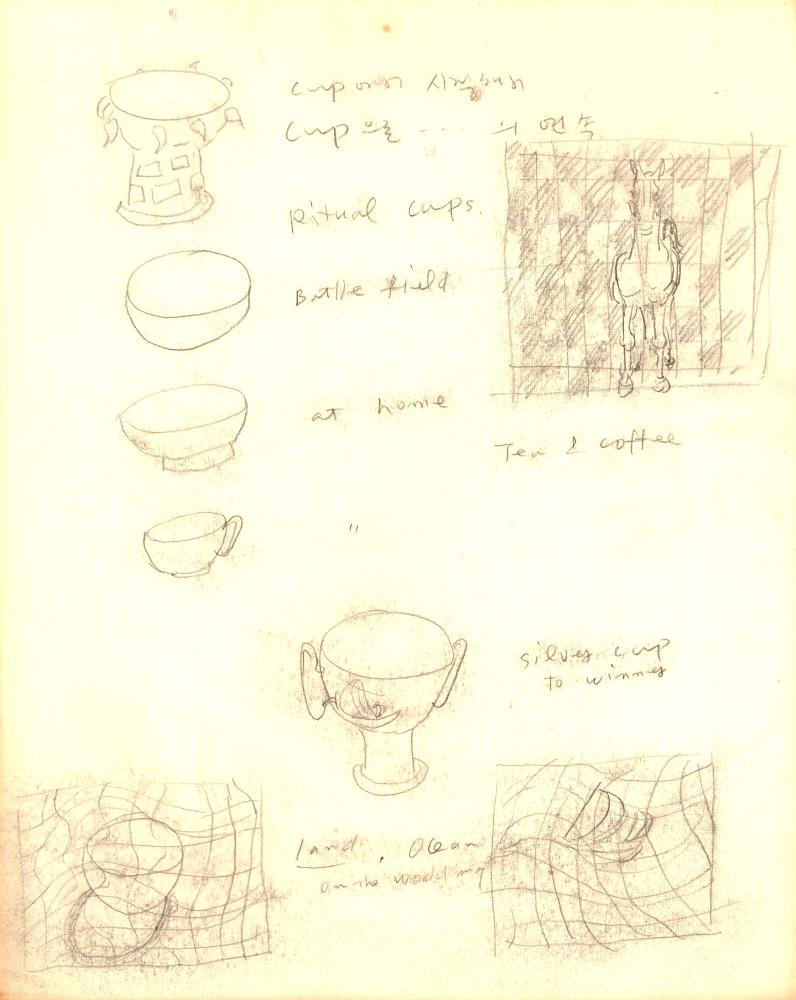 cup에서 시작해서
cup으로 .... 의 연속
Ritual cups.
Battle field
at home
Tea & coffee
"
silver cup
to winner
land, Ocean
on the world map